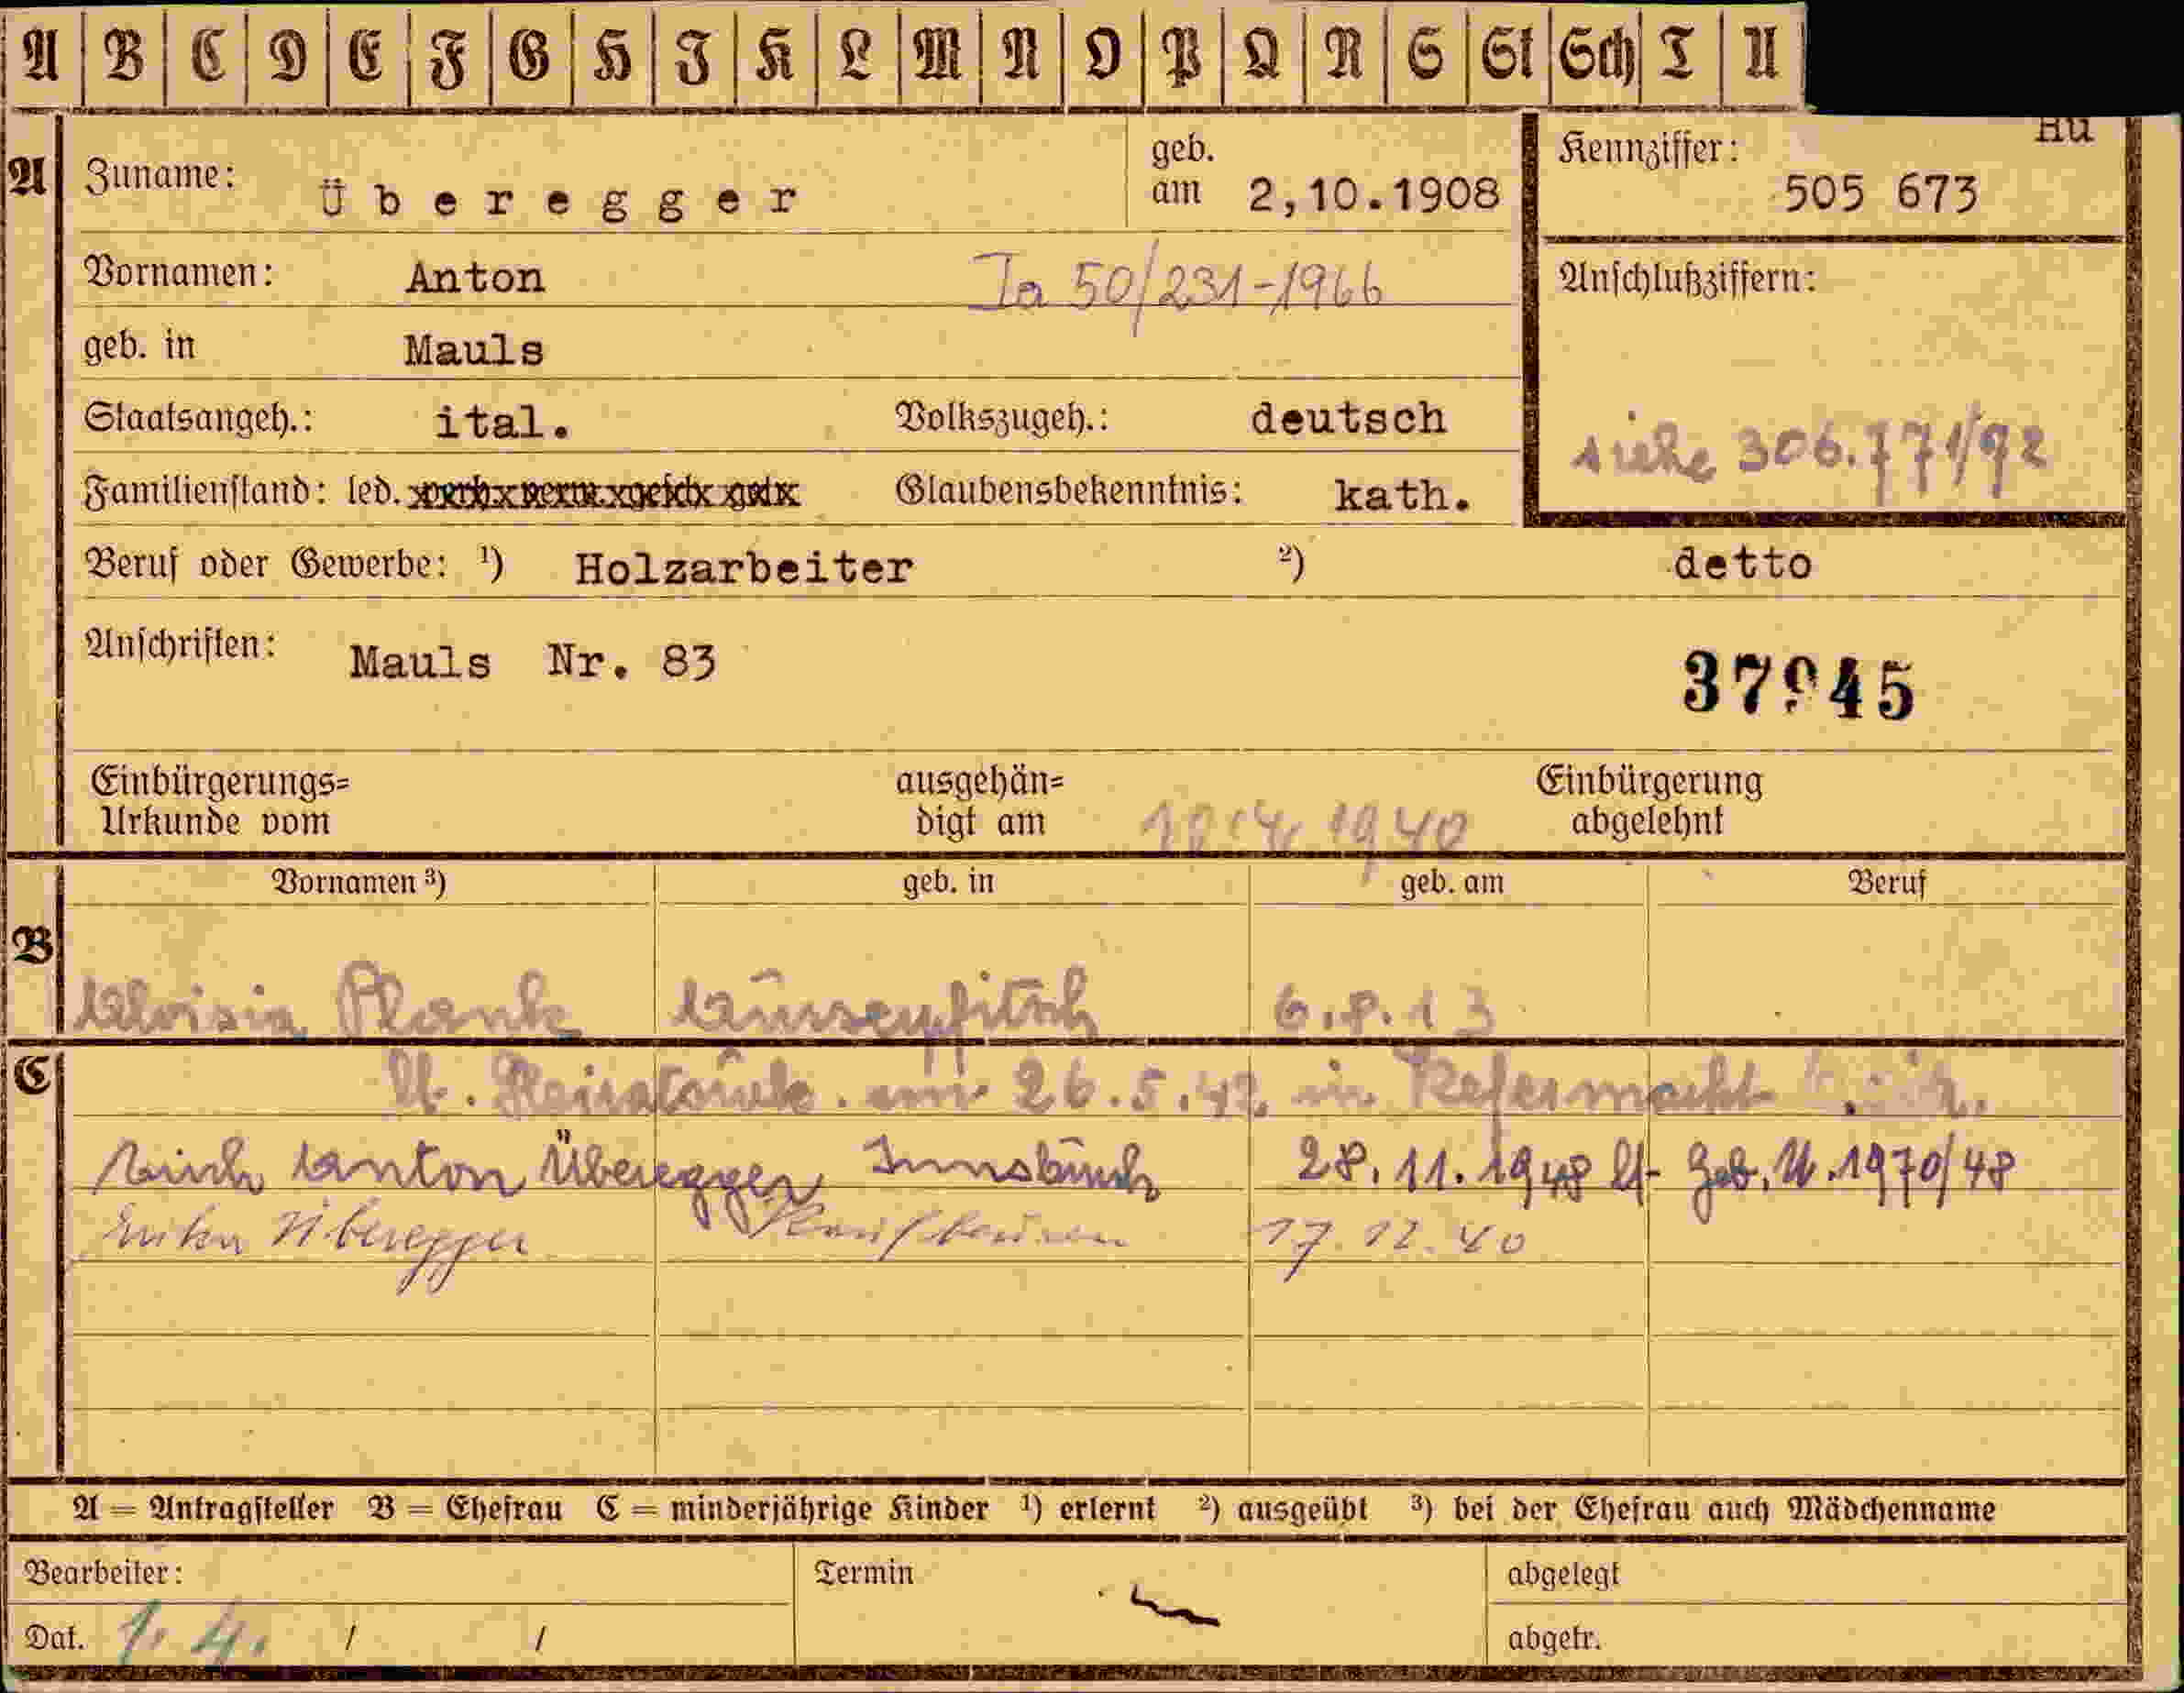 A B C D E F G H I K L M N O P Q R S St Sch T U
Hu
A Zuname: Überegger geb. am 2,10.1908 Kennziffer: 505 673
Vornamen: Anton Ia 50/231-1966 Anschlußziffern:
geb. in Mauls
Staatsangeh.: ital. Volkszugeh.: deutsch siehe 306.771/92
Familienstand: led. Glaubensbekenntnis: kath.
Beruf oder Gewerbe: ¹) Holzarbeiter ²) detto
Anschriften: Mauls Nr. 83
37945
Einbürgerungs= ausgehän= Einbürgerung
Urkunde vom digt am 1940 abgelehnt
Vornamen ³) geb. in geb. am Beruf
B
Aloisia Plank Aussenpfitsch 6.8.13
C
lt. Heiratsurk. am 26.5.42 in
Anton Überegger Innsbruck 28.11.1948 lt. Geb.U.1970/48
Erika Überegger 17.12.40
A = Antragsteller B = Ehefrau C = minderjährige Kinder ¹) erlernt ²) ausgeübt ³) bei der Ehefrau auch Mädchenname
Bearbeiter: Termin abgelegt
Dat. 1. 4. / / abgetr.